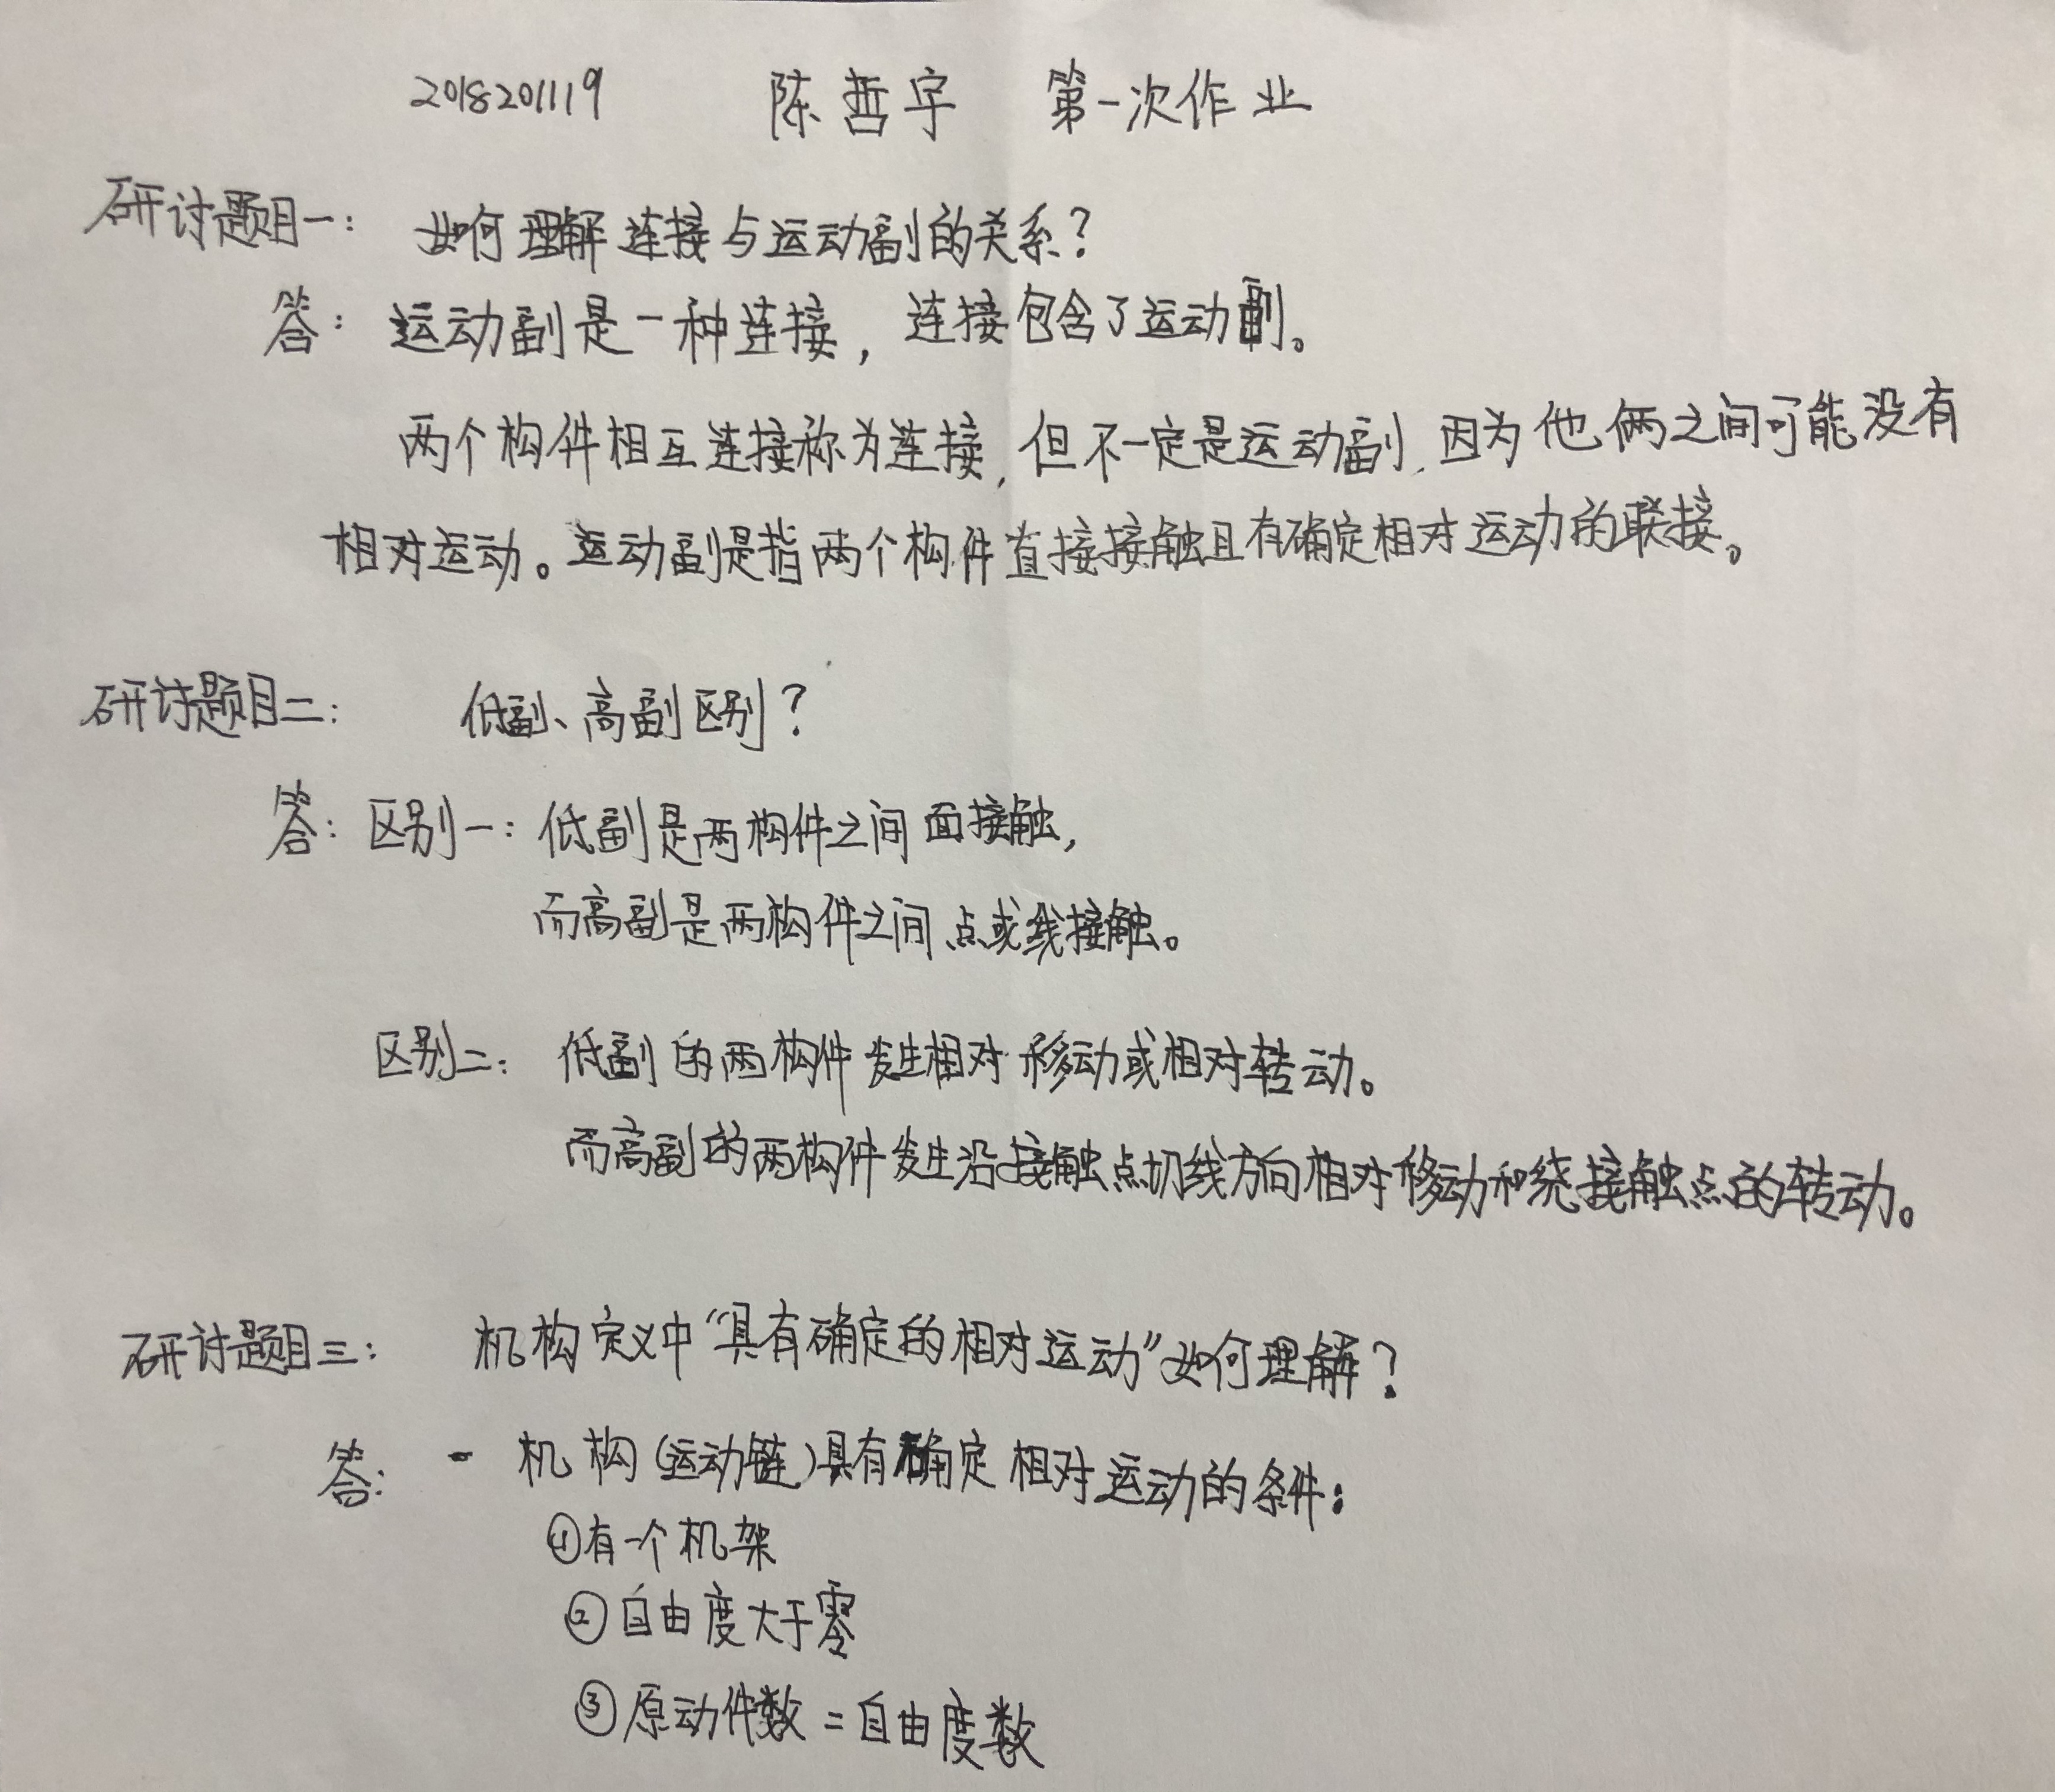 2018201119 陈哲宇 第一次作业
研讨题目一: 如何理解连接与运动副的关系?
答: 运动副是一种连接, 连接包含了运动副。
两个构件相互连接称为连接, 但不一定是运动副, 因为他俩之间可能没有
相对运动。运动副是指两个构件直接接触且有确定相对运动的联接。
研讨题目二: 低副、高副区别?
答: 区别一: 低副是两构件之间面接触,
而高副是两构件之间点或线接触。
区别二: 低副的两构件发生相对移动或相对转动。
而高副的两构件发生沿接触点切线方向相对移动和绕接触点的转动。
研讨题目三: 机构定义中“具有确定的相对运动”如何理解?
答: - 机构(运动链)具有确定相对运动的条件:
①有一个机架
②自由度大于零
③原动件数=自由度数